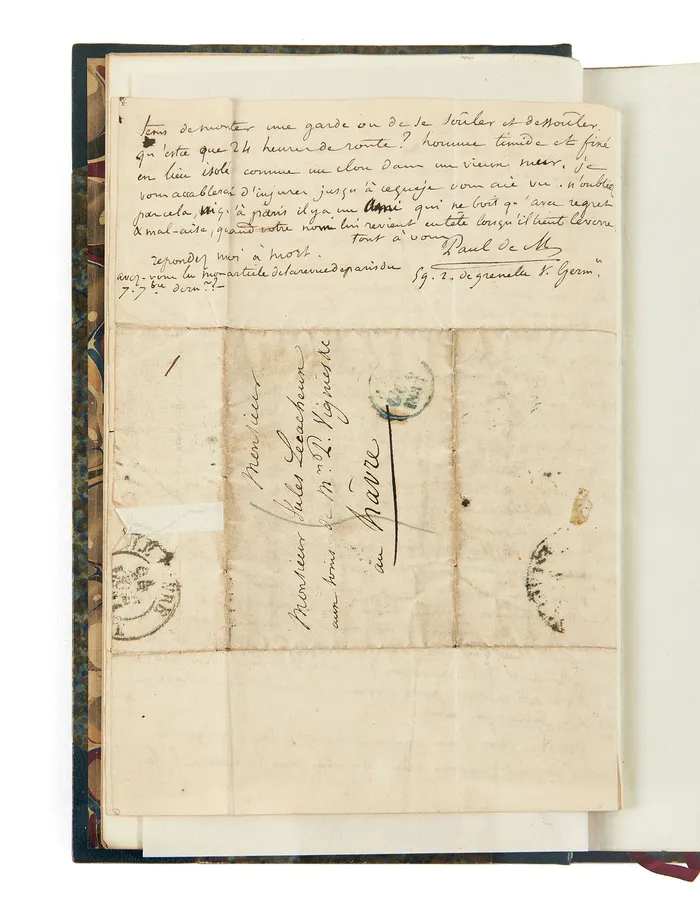 tems de monter une garde ou de se soûler et dessoûler.
qu'est ce que 24 heures de route? homme timide et fixé
en lieu isolé comme un clou dans un vieux mur. je
vous accablerai d'injures jusqu'à ceque je vous aie vu. n'oubliez
pas cela, qu'à paris il y a un Ami qui ne boit qu'avec regret
& mal-aise, quand votre nom lui revient en tête lorsqu'il tient le verre.
tout à vous
Paul de M
repondez moi à mort.
avez-vous lu mon article de la revue de paris du
7. 7bre dern.?
59. r. de grenelle St. Germn
Monsieur
Monsieur Jules Lecacheux
aux soins de Mr P. Vignes
au hâvre